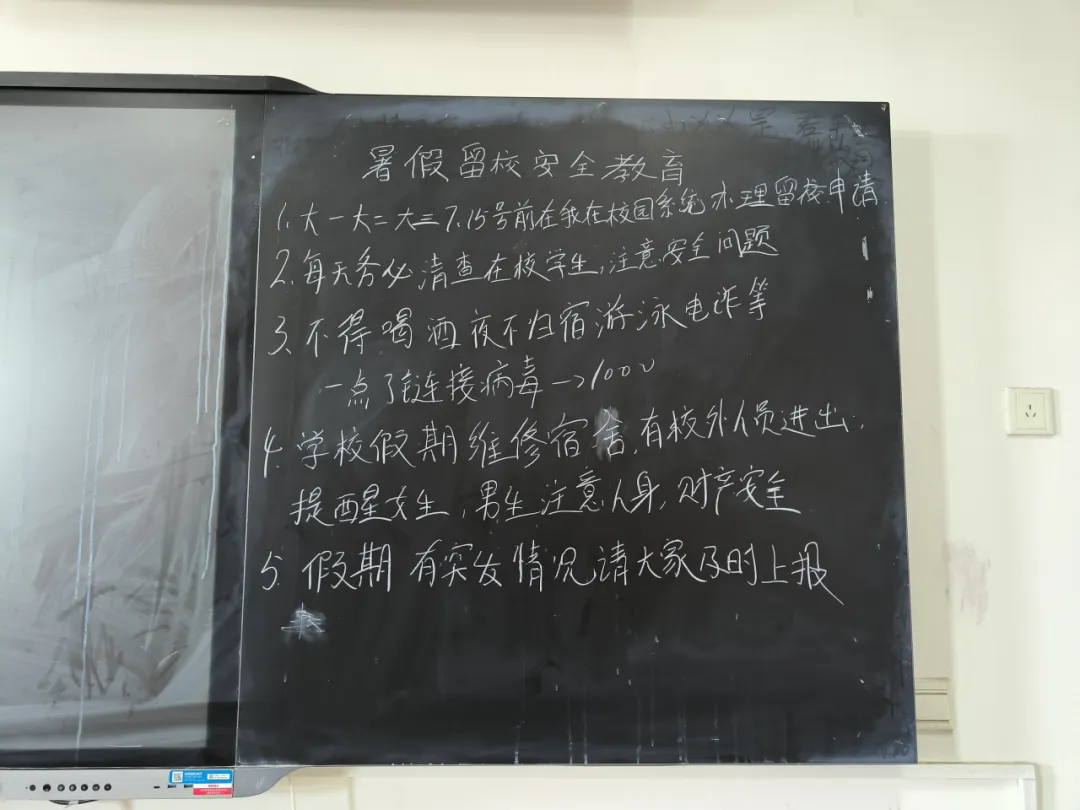 暑假留校安全教育
1.大一大二大三7.15号前在我在校园系统办理留校申请
2.每天务必清查在校学生,注意安全问题
3.不得喝酒夜不归宿游泳电诈等
一点了链接病毒→1000
4.学校假期维修宿舍,有校外人员进出,
提醒女生,男生注意人身,财产安全
5.假期有突发情况请大家及时上报